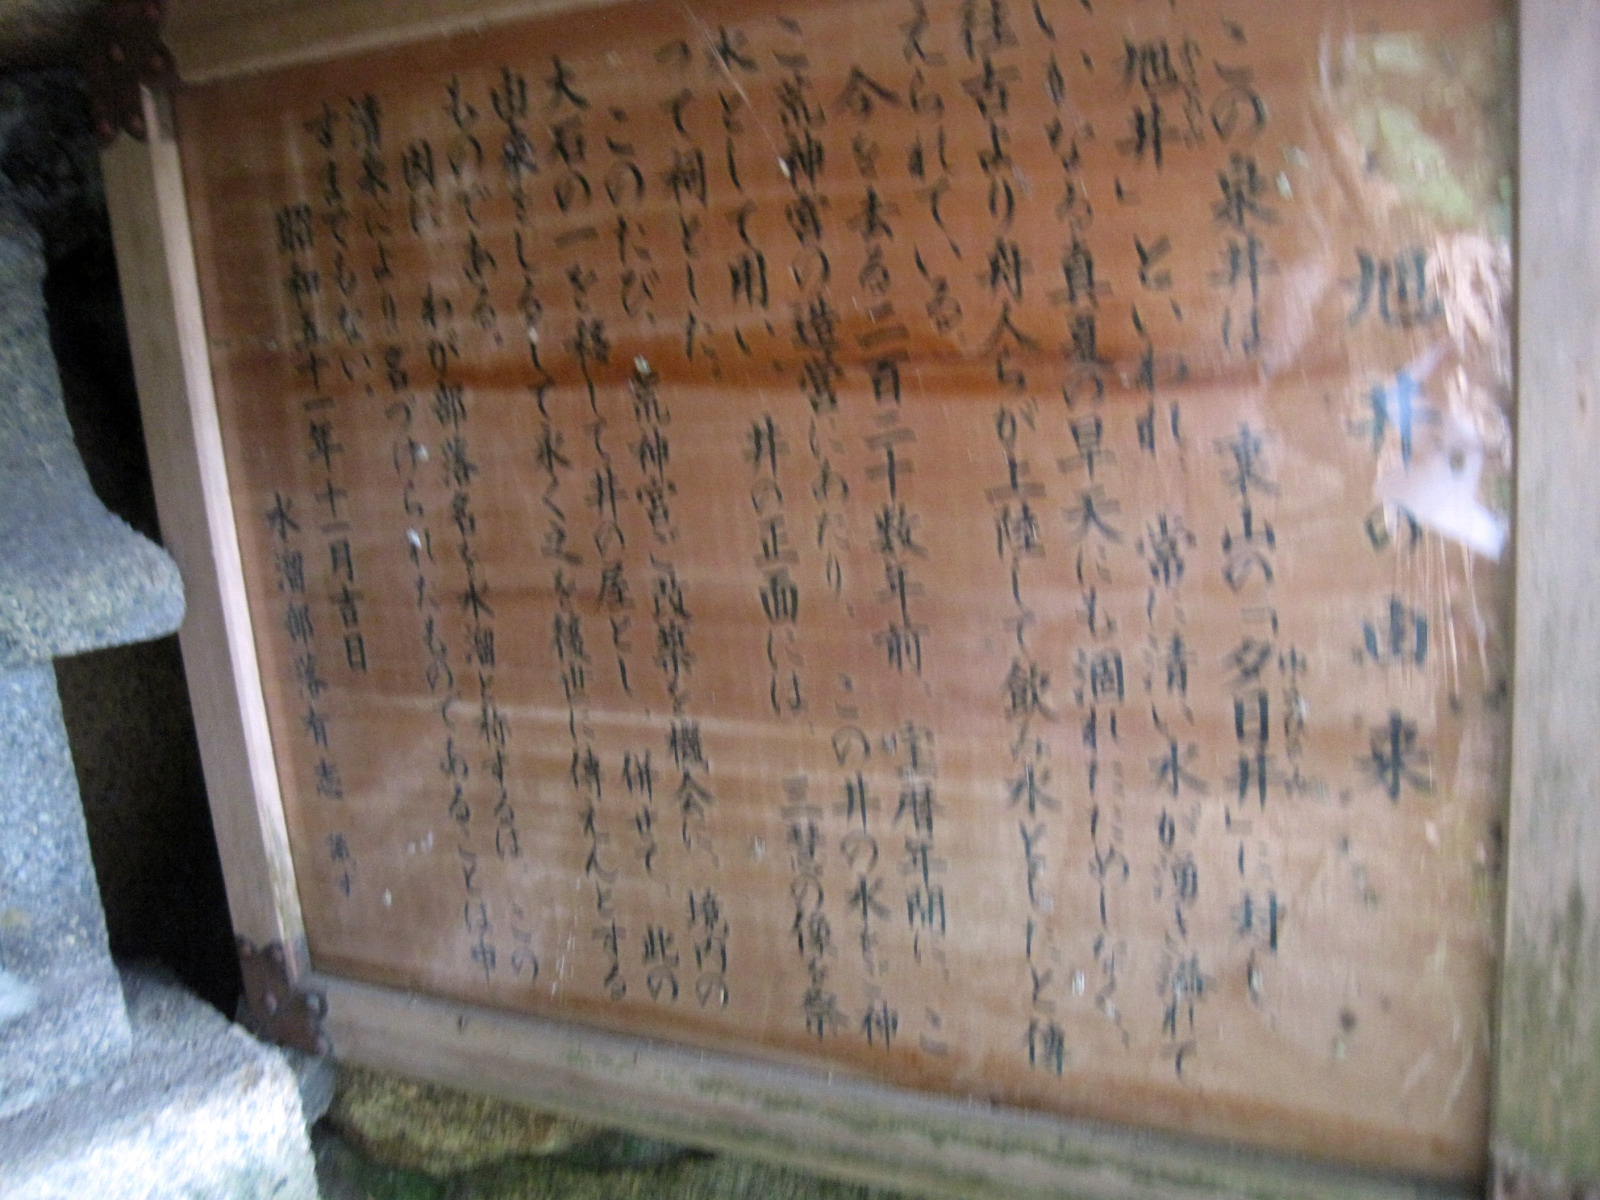 旭井の由来
この泉井は、東山の「夕日井」に対し
旭井」といわれ、常に清い水が湧き溢れて
いかなる真夏の旱天にも涸れたためしなく、
往古より舟人らが上陸して飲み水としたと傳
えられている。
今を去る二百二十数年前、宝暦年間に、こ
この井の水をご神
こ荒神宮の造営にあたり、
水として用い、井の正面には、三
の像を祭
って祠とした。
このたび、荒神宮ご改築を機会に、境内の
大石の一を移して井の屋とし、併せて、此の
由来をしるして永く之を後世に傳えんとする
ものである。
因に、わが部落名を水溜と称するは、この
清水により名づけられたものであることは申
すまでもない。
昭和五十一年十一月吉日
水溜部落有志